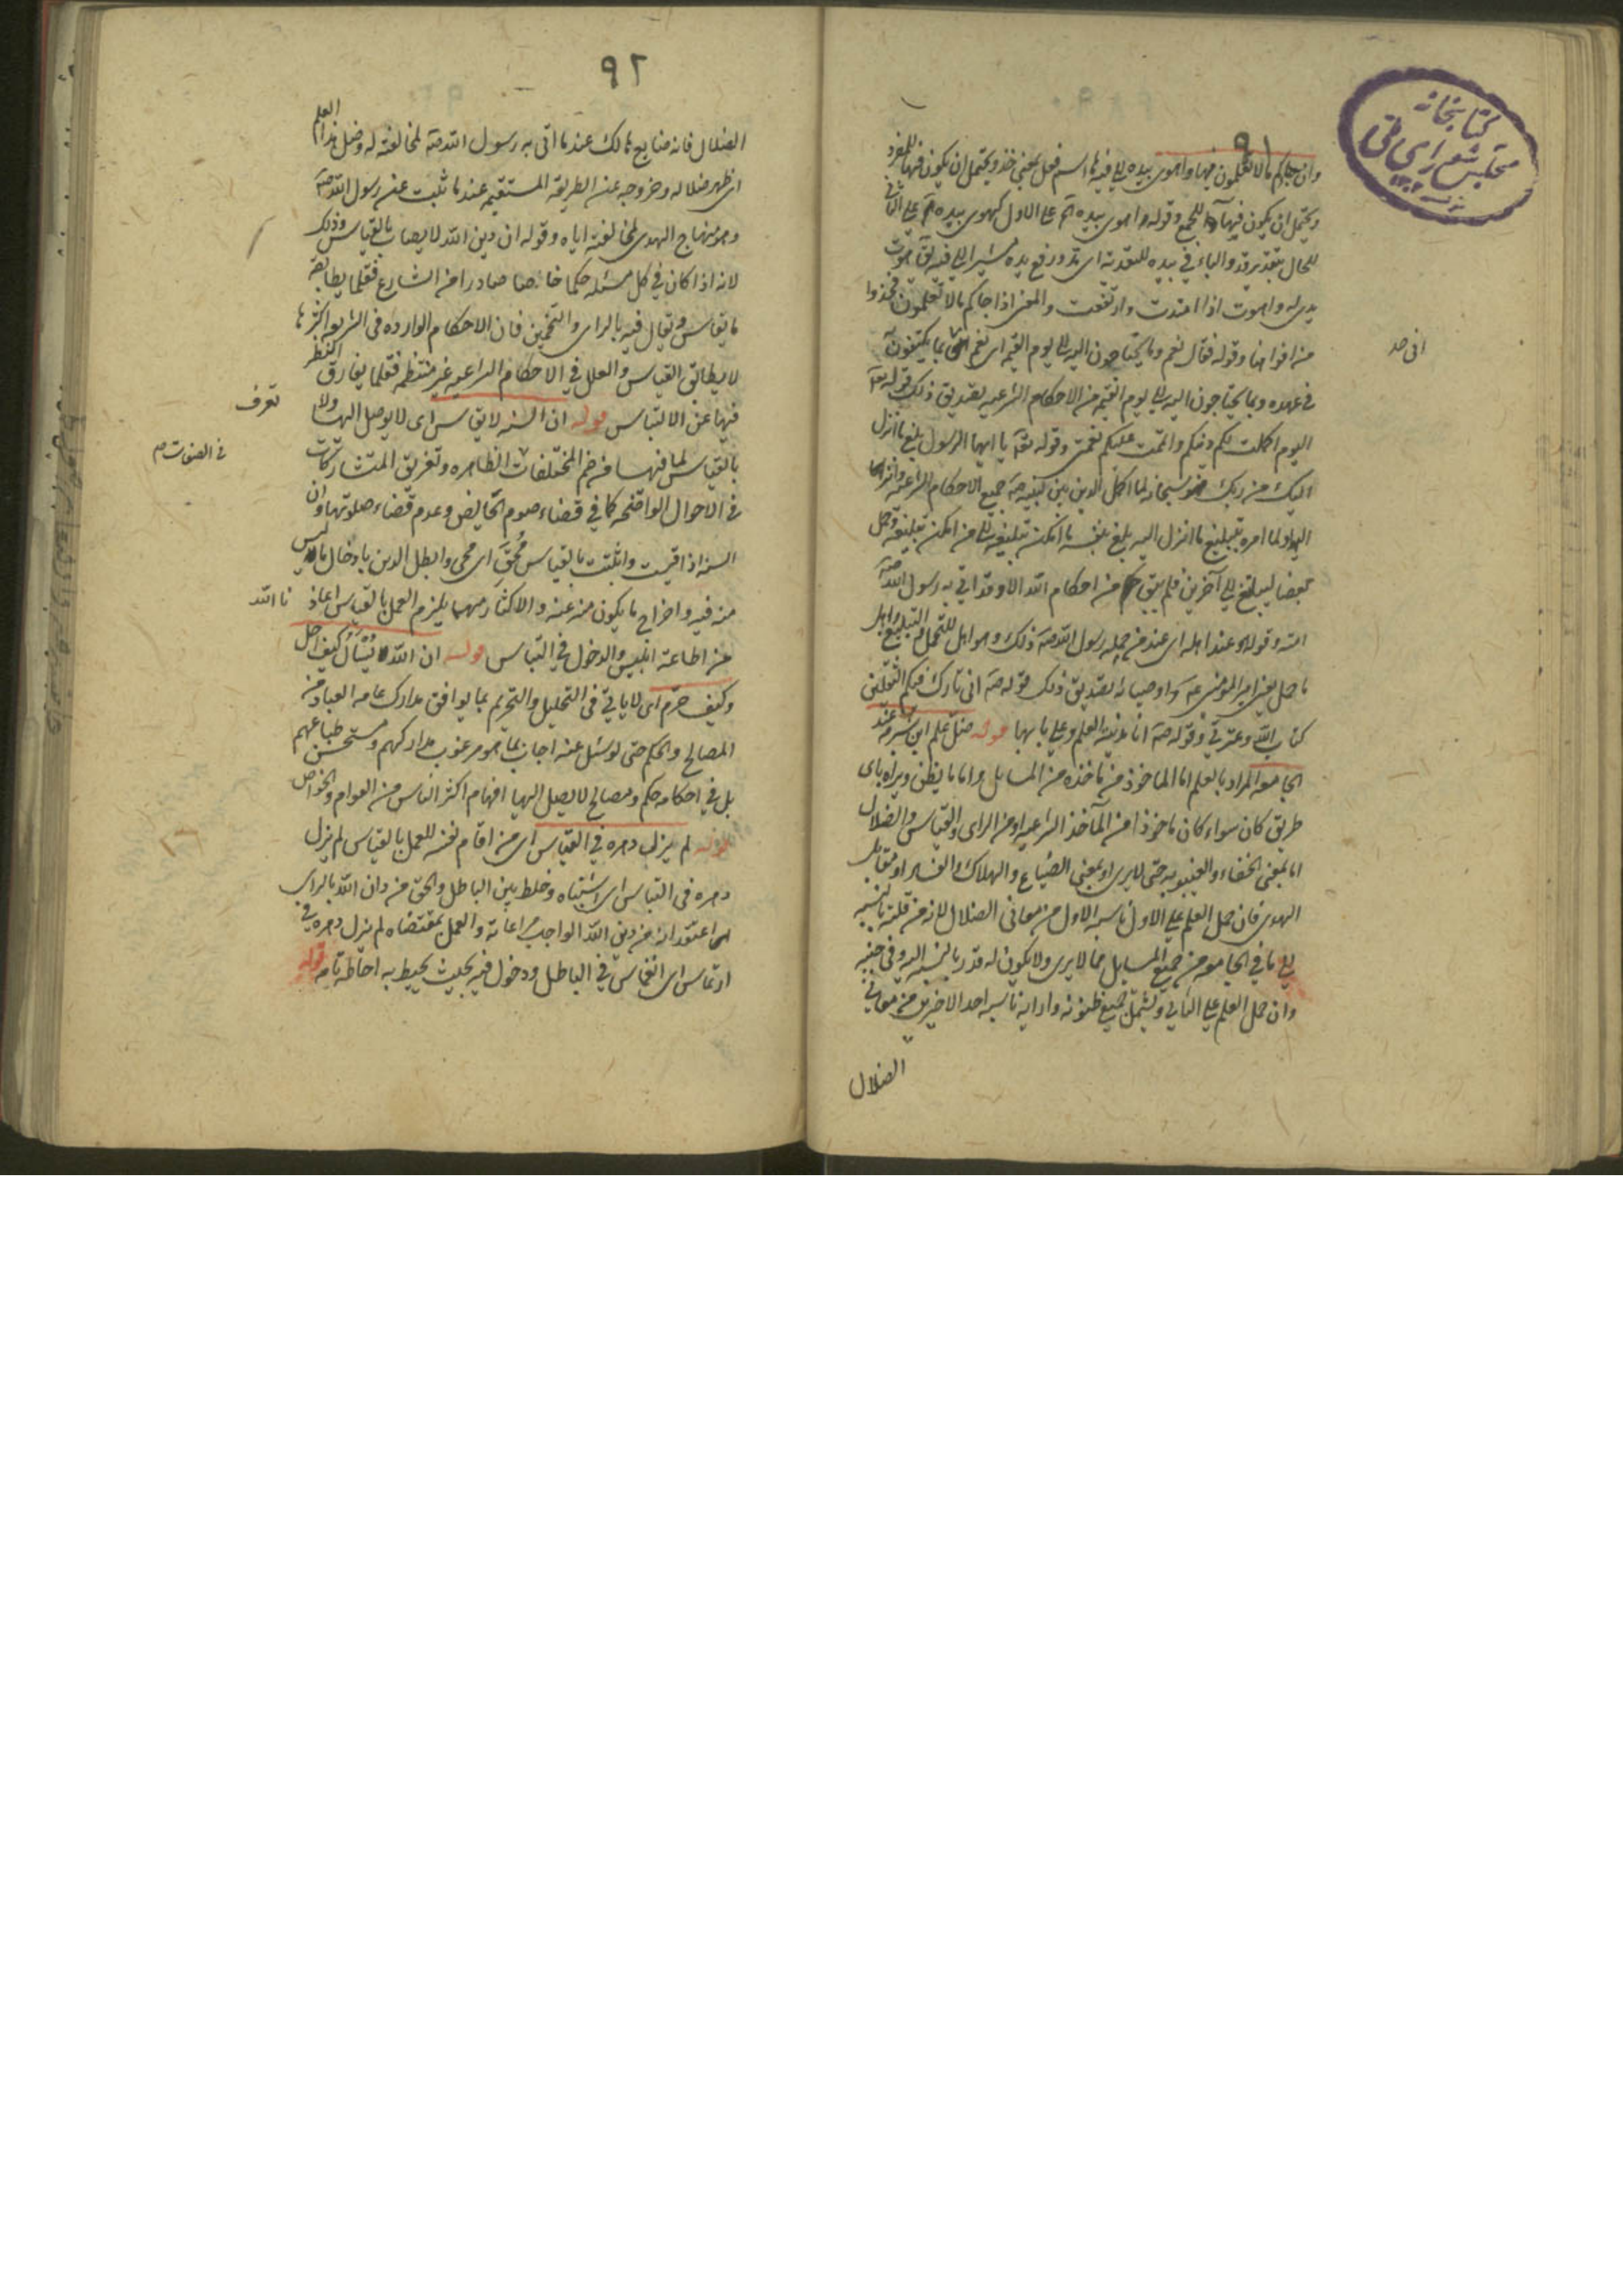 كتابخانه
مجلس شورای ملی
٩١
وان جاءكم ما لا تعلمون فيها واهوى بيده الى فيه ها اسم فعل بمعنى خذ ويحتمل ان يكون فيها للمفرد
ويحتمل ان يكون للجمع وقوله واهوى بيده على الاول كهوى بيده على الثانى
للحال بتقدير قد والباء فى بيده للتعدية اى مد ورفع يده مشيرا الى فيه يقال اهويت
يدى له واهوت اذا امتدت وارتفعت والمعنى اذا جاكم ما لا تعلمون فخذوا
من افواهنا وقوله فقال نعم وما يحتاجون اليه الى يوم القيمه اى نعم اتى بما يكتفون به
اتى صد
فى عهده وبما يحتاجون اليه الى يوم القيمه من الاحكام الشرعيه يصديق ذلك قوله تعه
اليوم اكملت لكم دينكم واتممت عليكم نعمتى وقوله تعه يا ايها الرسول بلغ ما انزل
اليك من ربك فهو سبحانه لما اكمل الدين بين لنبيه صه جميع الاحكام الشرعيه وانزلها
اليه ولما امره بتبليغ ما انزل اليه بلغ بنفسه ما امكن تبليغه الى من امكن تبليغه وحمل
بعضا ليبلغ الى آخرين فلم يبق حكم من احكام الله الا وقد اتى به رسول الله صه
امته وقوله هو عند اهله اى عند من حمله رسول الله صه ذلك وهو اهل للتحمل والتبليغ واهل
ما حمل يعنى امير المومنين عه واوصيائه يصديق ذلك قوله صه انى تارك فيكم الثقلين
كتاب الله وعترتى وقوله صه انا مدينة العلم وعلى بابها قوله ضل علم ابن شبرمه عند
الجامعه المراد بالعلم اما الماخوذ من ماخذه من المسايل واما ما يظن ويراه باى
طريق كان سواء كان ماخوذا من المآخذ الشرعيه او من الراى والقياس والضلال
اما بمعنى الخفاء والغيبوبه حتى لا يرى او بمعنى الضياع والهلاك والفساد او مقابل
الهدى فان حمل العلم على الاول ناسبه الاول من معانى الضلال لانه من قلته بالنسبه
الى ما فى الجامعه من جميع المسايل مما لا يرى ولا يكون له قدر بالنسبه اليه وفى جنبه
وان حمل العلم على الثانى ويشمل جميع ظنونه وارايه ناسبه احد الاخيرين من معانى
الضلال
٩٢
الضلال فانه ضايع هالك عند ما اتى به رسول الله صه لمخالفته له وضل هذا العلم
اى ظهر ضلاله وخروجه عن الطريقه المستقيمه عند ما ثبت عن رسول الله صه
وهو منهاج الهدى لمخالفته اياه وقوله ان دين الله لا يصاب بالقياس وذلك
لانه اذا كان فى كل مسئله حكما خاصا صادرا من الشارع فقلما يطابقه
ما يقاس ويقال فيه بالراى والتخمين فان الاحكام الوارده فى الشريعه اكثرها
لا يطابق القياس والعلل فى الاحكام الشرعيه غير منتظمه فقلما يفارق النظر
فيها عن الالتباس قوله ان السنه لا يقاس اى لا يوصل اليها ولا
تعرف
بالقياس لما فيها من ضم المختلفات الظاهره وتفريق المتشاركات
فى الصفات صح
فى الاحوال الواضحه كما فى قضاء صوم الحايض وعدم قضاء صلوتها وان
السنه اذا قيست واثبتت بالقياس مُحق اى محى وابطل الدين بادخال ما ليس
منه فيه واخراج ما يكون منه عنه والاكثار منهما يلزم العمل بالقياس اعاذنا الله
من اطاعة ابليس والدخول فى القياس قوله ان الله لا يُسْأل كيف احل
وكيف حرّم اى لا ياتى فى التحليل والتحريم بما يوافق مدارك عامه العباد من
المصالح والحكم حتى لو سئل عنه اجاب بما هو مرغوب مداركهم ومستحسن طباعهم
بل فى احكامه حكم ومصالح لا يصل اليها افهام اكثر الناس من العوام والخواص
قوله لم يزل دهره فى القياس اى من اقام نفسه للعمل بالقياس لم يزل
دهره فى التباس اى اشتباه وخلط بين الباطل والحق من دان الله بالراى
اعتقد انه من دين الله الواجب مراعاته والعمل بمقتضاه لم يزل دهره فى
ارتماس اى انغماس فى الباطل ودخول فيه بحيث يحيط به احاطة تامه قوله